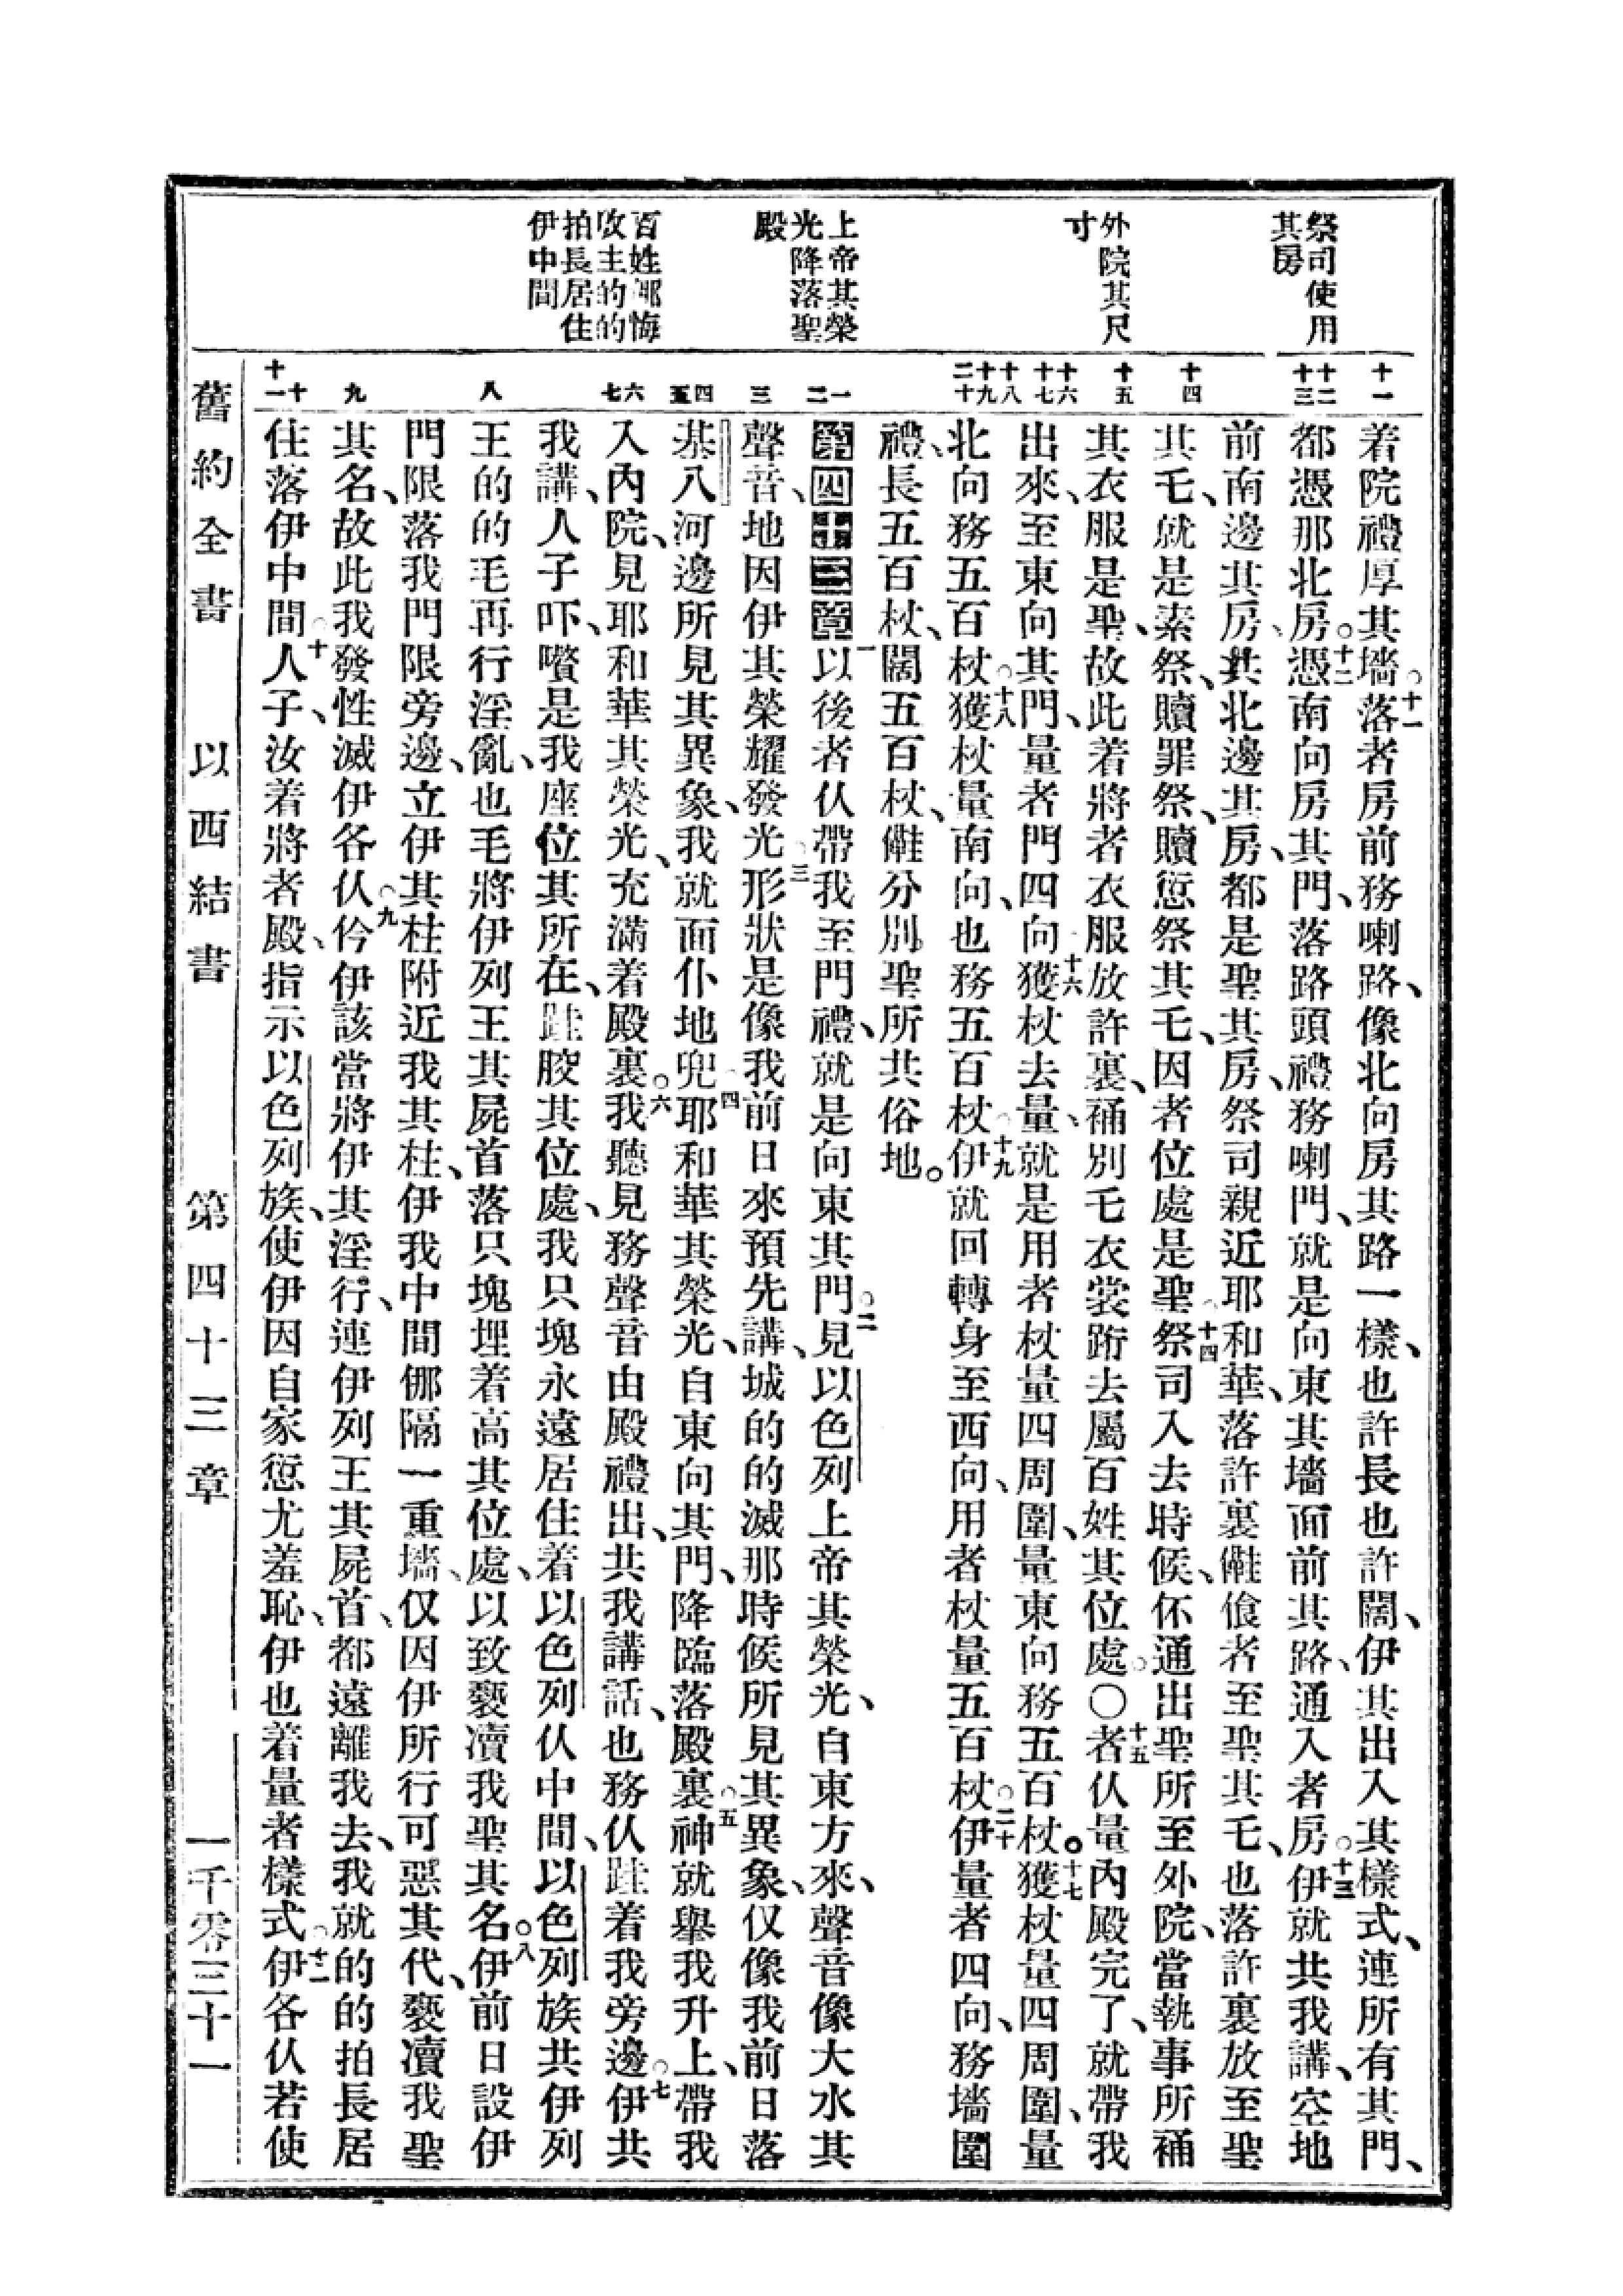 祭司使用
其房
外院其尺
寸
上帝其榮
光降落聖
殿
百姓那悔
改主的的
拍長居住
伊中間
十一
十二
十三
十四
十五
十六
十七
十八
十九
二十
一
二
三
四
五
六
七
八
九
十
十一
着院禮厚其墻○十一落者房前務喇路、像北向房其路一樣、也許長也許闊、伊其出入其樣式、連所有其門、
都憑那北房○十二憑南向房其門、落路頭禮務喇門、就是向東其墻面前其路、通入者房○十三伊就共我講、空地
前南邊其房、共北邊其房、都是聖其房、祭司親近耶和華、落許裏䧹飡者至聖其乇、也落許裏放至聖
其乇、就是素祭、贖罪祭、贖愆祭其乇、因者位處是聖○十四祭司入去時候、伓通出聖所至外院、當執事所補
其衣服是聖、故此着將者衣服放許裏、補別乇衣裳跡去屬百姓其位處○〇十五者仈量內殿完了、就帶我
出來、至東向其門、量者門四向○十六獲杖去量、就是用者杖量四周圍、量東向務五百杖○十七獲杖量四周圍、量
北向務五百杖○十八獲杖量南向、也務五百杖○十九伊就回轉身至西向、用者杖量五百杖○二十伊量者四向、務墻圍
禮、長五百杖、闊五百杖、䧹分別聖所共俗地。
第四十三章一以後者仈帶我至門禮、就是向東其門○二見以色列上帝其榮光、自東方來、聲音像大水其
聲音、地因伊其榮耀發光○三形狀是像我前日來預先講、城的的滅那時候所見其異象、仅像我前日落
基八河邊所見其異象、我就面仆地兜○四耶和華其榮光、自東向其門、降臨落殿裏○五神就舉我升上、帶我
入內院、見耶和華其榮光、充滿着殿裏○六我聽見務聲音由殿禮出、共我講話、也務仈跬着我旁邊○七伊共
我講、人子吓、嚽是我座位其所在、跬骹其位處、我只塊永遠居住着以色列仈中間、以色列族共伊列
王的的乇再行淫亂、也乇將伊列王其屍首落只塊埋着高其位處、以致褻瀆我聖其名○八伊前日設伊
門限落我門限旁邊、立伊其柱附近我其柱、伊我中間㑚隔一重墻、仅因伊所行可惡其代、褻瀆我聖
其名、故此我發性滅伊各仈○九伶伊該當將伊其淫行、連伊列王其屍首、都遠離我去、我就的的拍長居
住落伊中間○十人子、汝着將者殿、指示以色列族、使伊因自家愆尤羞恥、伊也着量者樣式○十一伊各仈若使
舊約全書　以西結書　第四十三章　一千零三十一